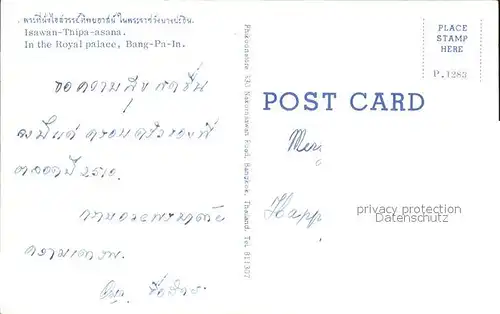 พระที่นั่งไอสวรรย์ทิพยอาสน์ ในพระราชวังบางปะอิน.
Isawan-Thipa-asana.
In the Royal palace, Bang-Pa-In.
PLACE
STAMP
HERE
P.1283
ขอความสุข สดชื่น
จงมีแด่ ครอบครัวของพี่
ตลอดปี 2510.
ความเคารพ.
Phakoondate 233 Nakornsawan Road, Bangkok, Thailand. Tel 811307
POST CARD
Mer
Happ
privacy protection
Datenschutz